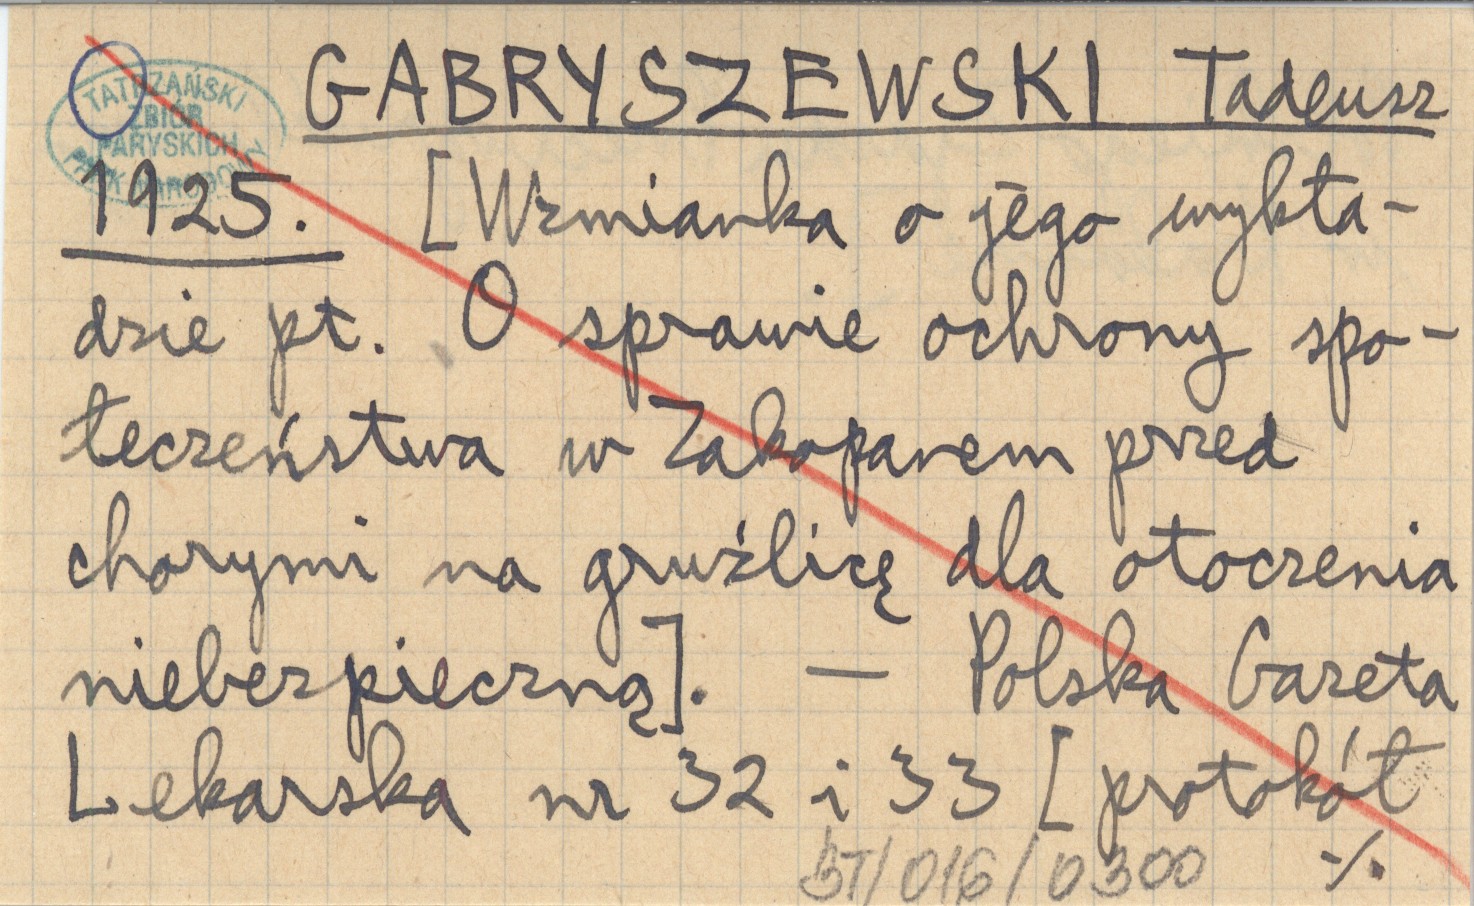 TATRZAŃSKI
ZBIÓR
PARYSKICH
PARK NARODOWY
GABRYSZEWSKI Tadeusz
1925. [Wzmianka o jego wykła-
dzie pt. O sprawie ochrony spo-
łeczeństwa w Zakopanem przed
chorymi na gruźlicę dla otoczenia
niebezpieczną]. — Polska Gazeta
Lekarska nr 32 i 33 [protokół
BT/016/0300 -/.